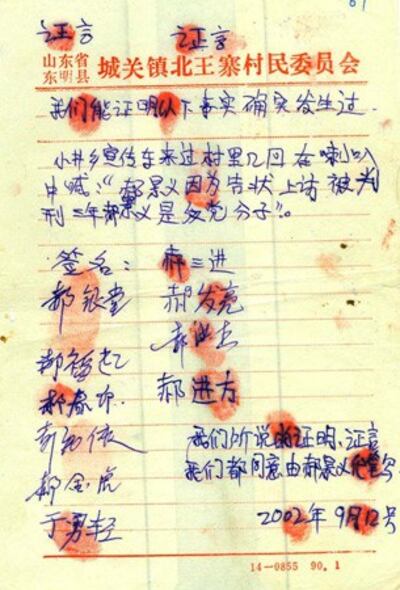 证言 证言
山东省
东明县 城关镇北王寨村民委员会
我们能证明以下事实确实发生过.
小井乡宣传车来过村里几回在喇叭
中喊:“郝景义因为告状上访被判
刑二年郝景义是反党分子”。
签名: 郝三进
郝银堂 郝发亮
郝进方
郝春
郝金虎
我们所说的证明、证言
我们都同意由郝景义
2002年9月12号
14-0855 90.1